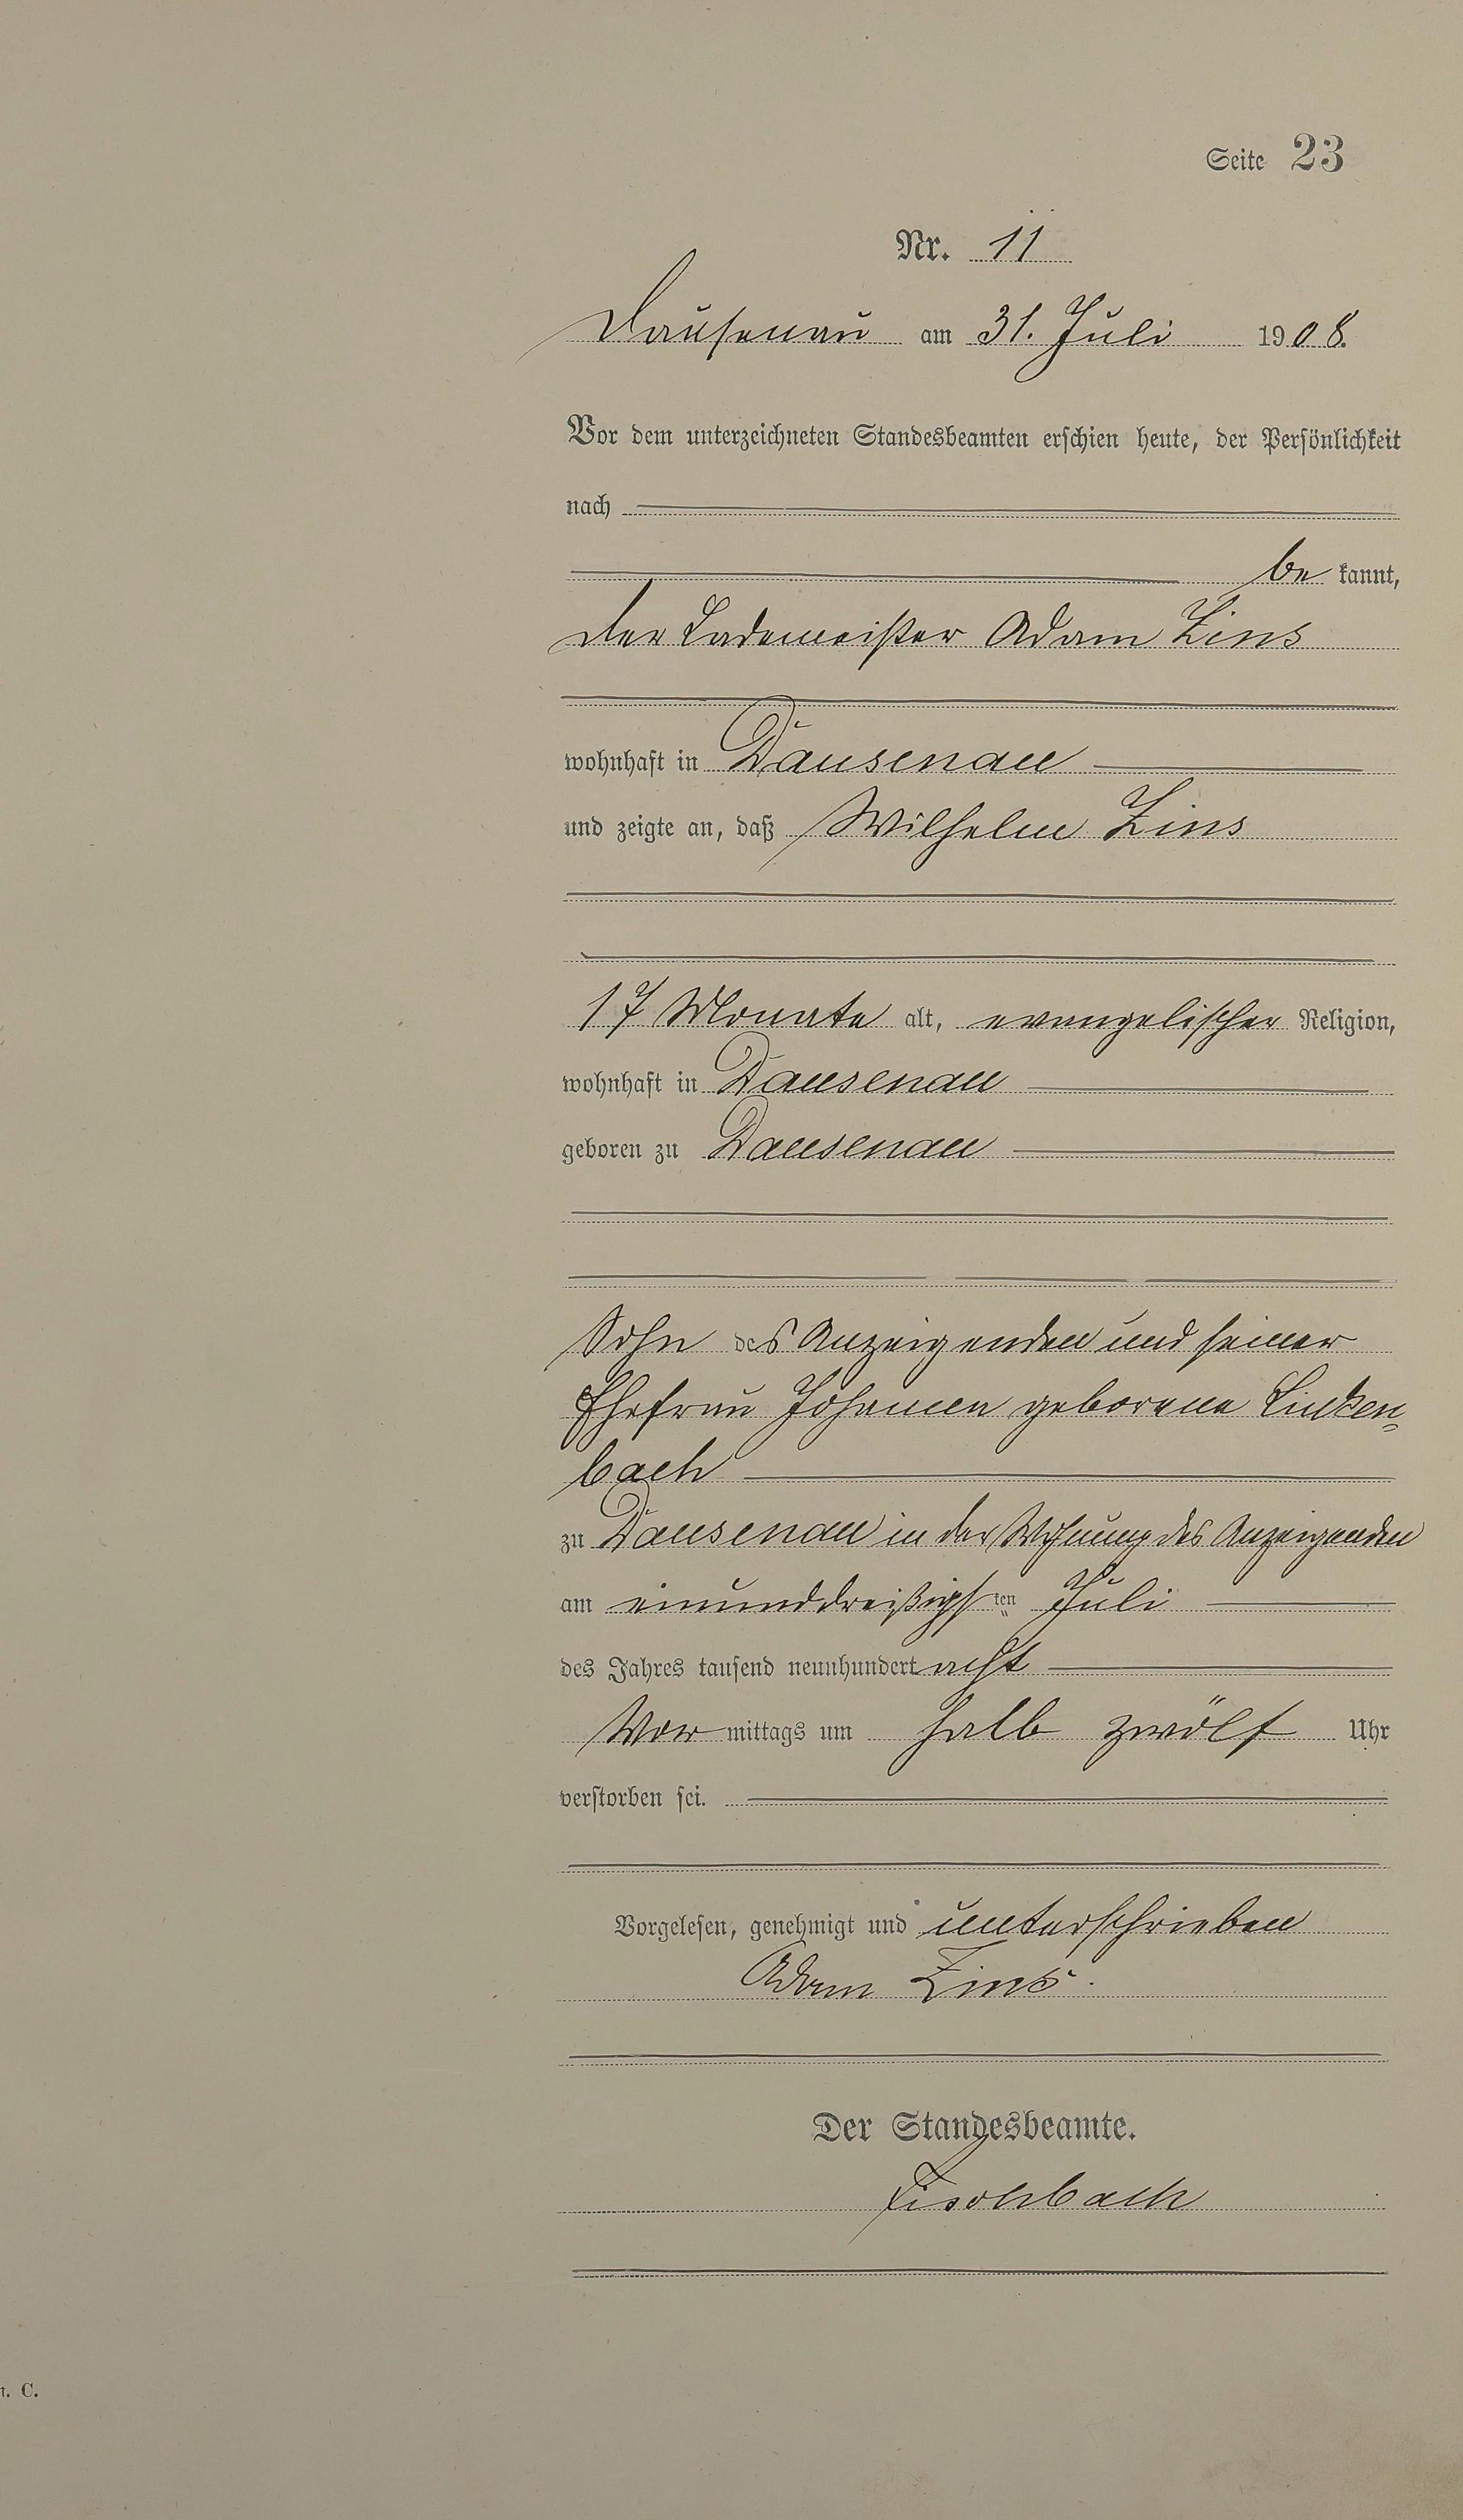 Seite 23
Nr. 11
Dausenau am 31. Juli 1908.
Vor dem unterzeichneten Standesbeamten erschien heute, der Persönlichkeit
nach
be kannt,
der Lademeister Adam Zins
wohnhaft in Dausenau
und zeigte an, daß Wilhelm Zins
17 Monate alt, evangelischer Religion,
wohnhaft in Dausenau
geboren zu Dausenau
Sohn des Anzeigenden und seiner
Ehefrau Johanna geborene Linken=
bach
zu Dausenau in der Wohnung des Anzeigenden
am einunddreißigsten Juli
des Jahres tausend neunhundert acht
Vor mittags um halb zwölf Uhr
verstorben sei.
Vorgelesen, genehmigt und unterschrieben
Adam Zins.
Der Standesbeamte.
Fischbach
t. C.